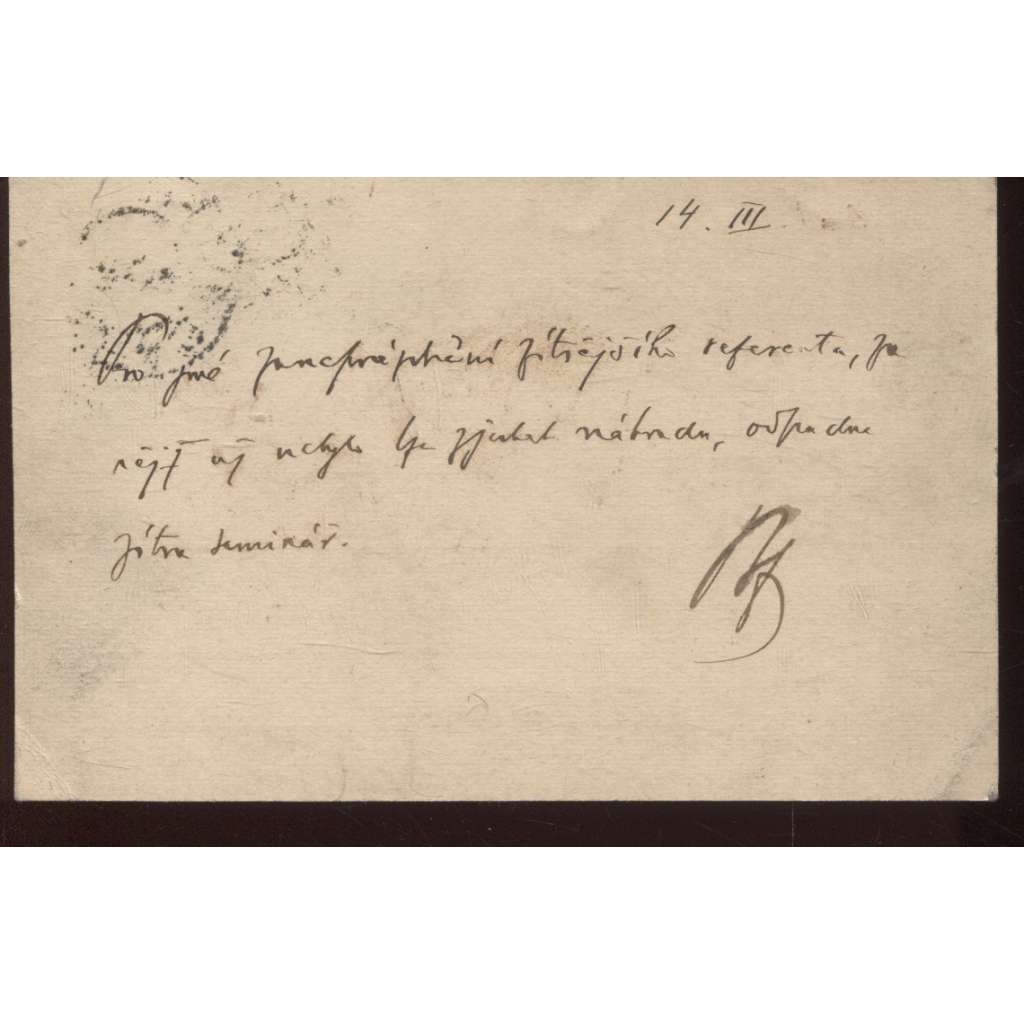 14. III.
Pro jiné zaneprázdnění zítřejšího referenta, za
nějž už nebylo lze získat náhradu, odpadne
zítra seminář.